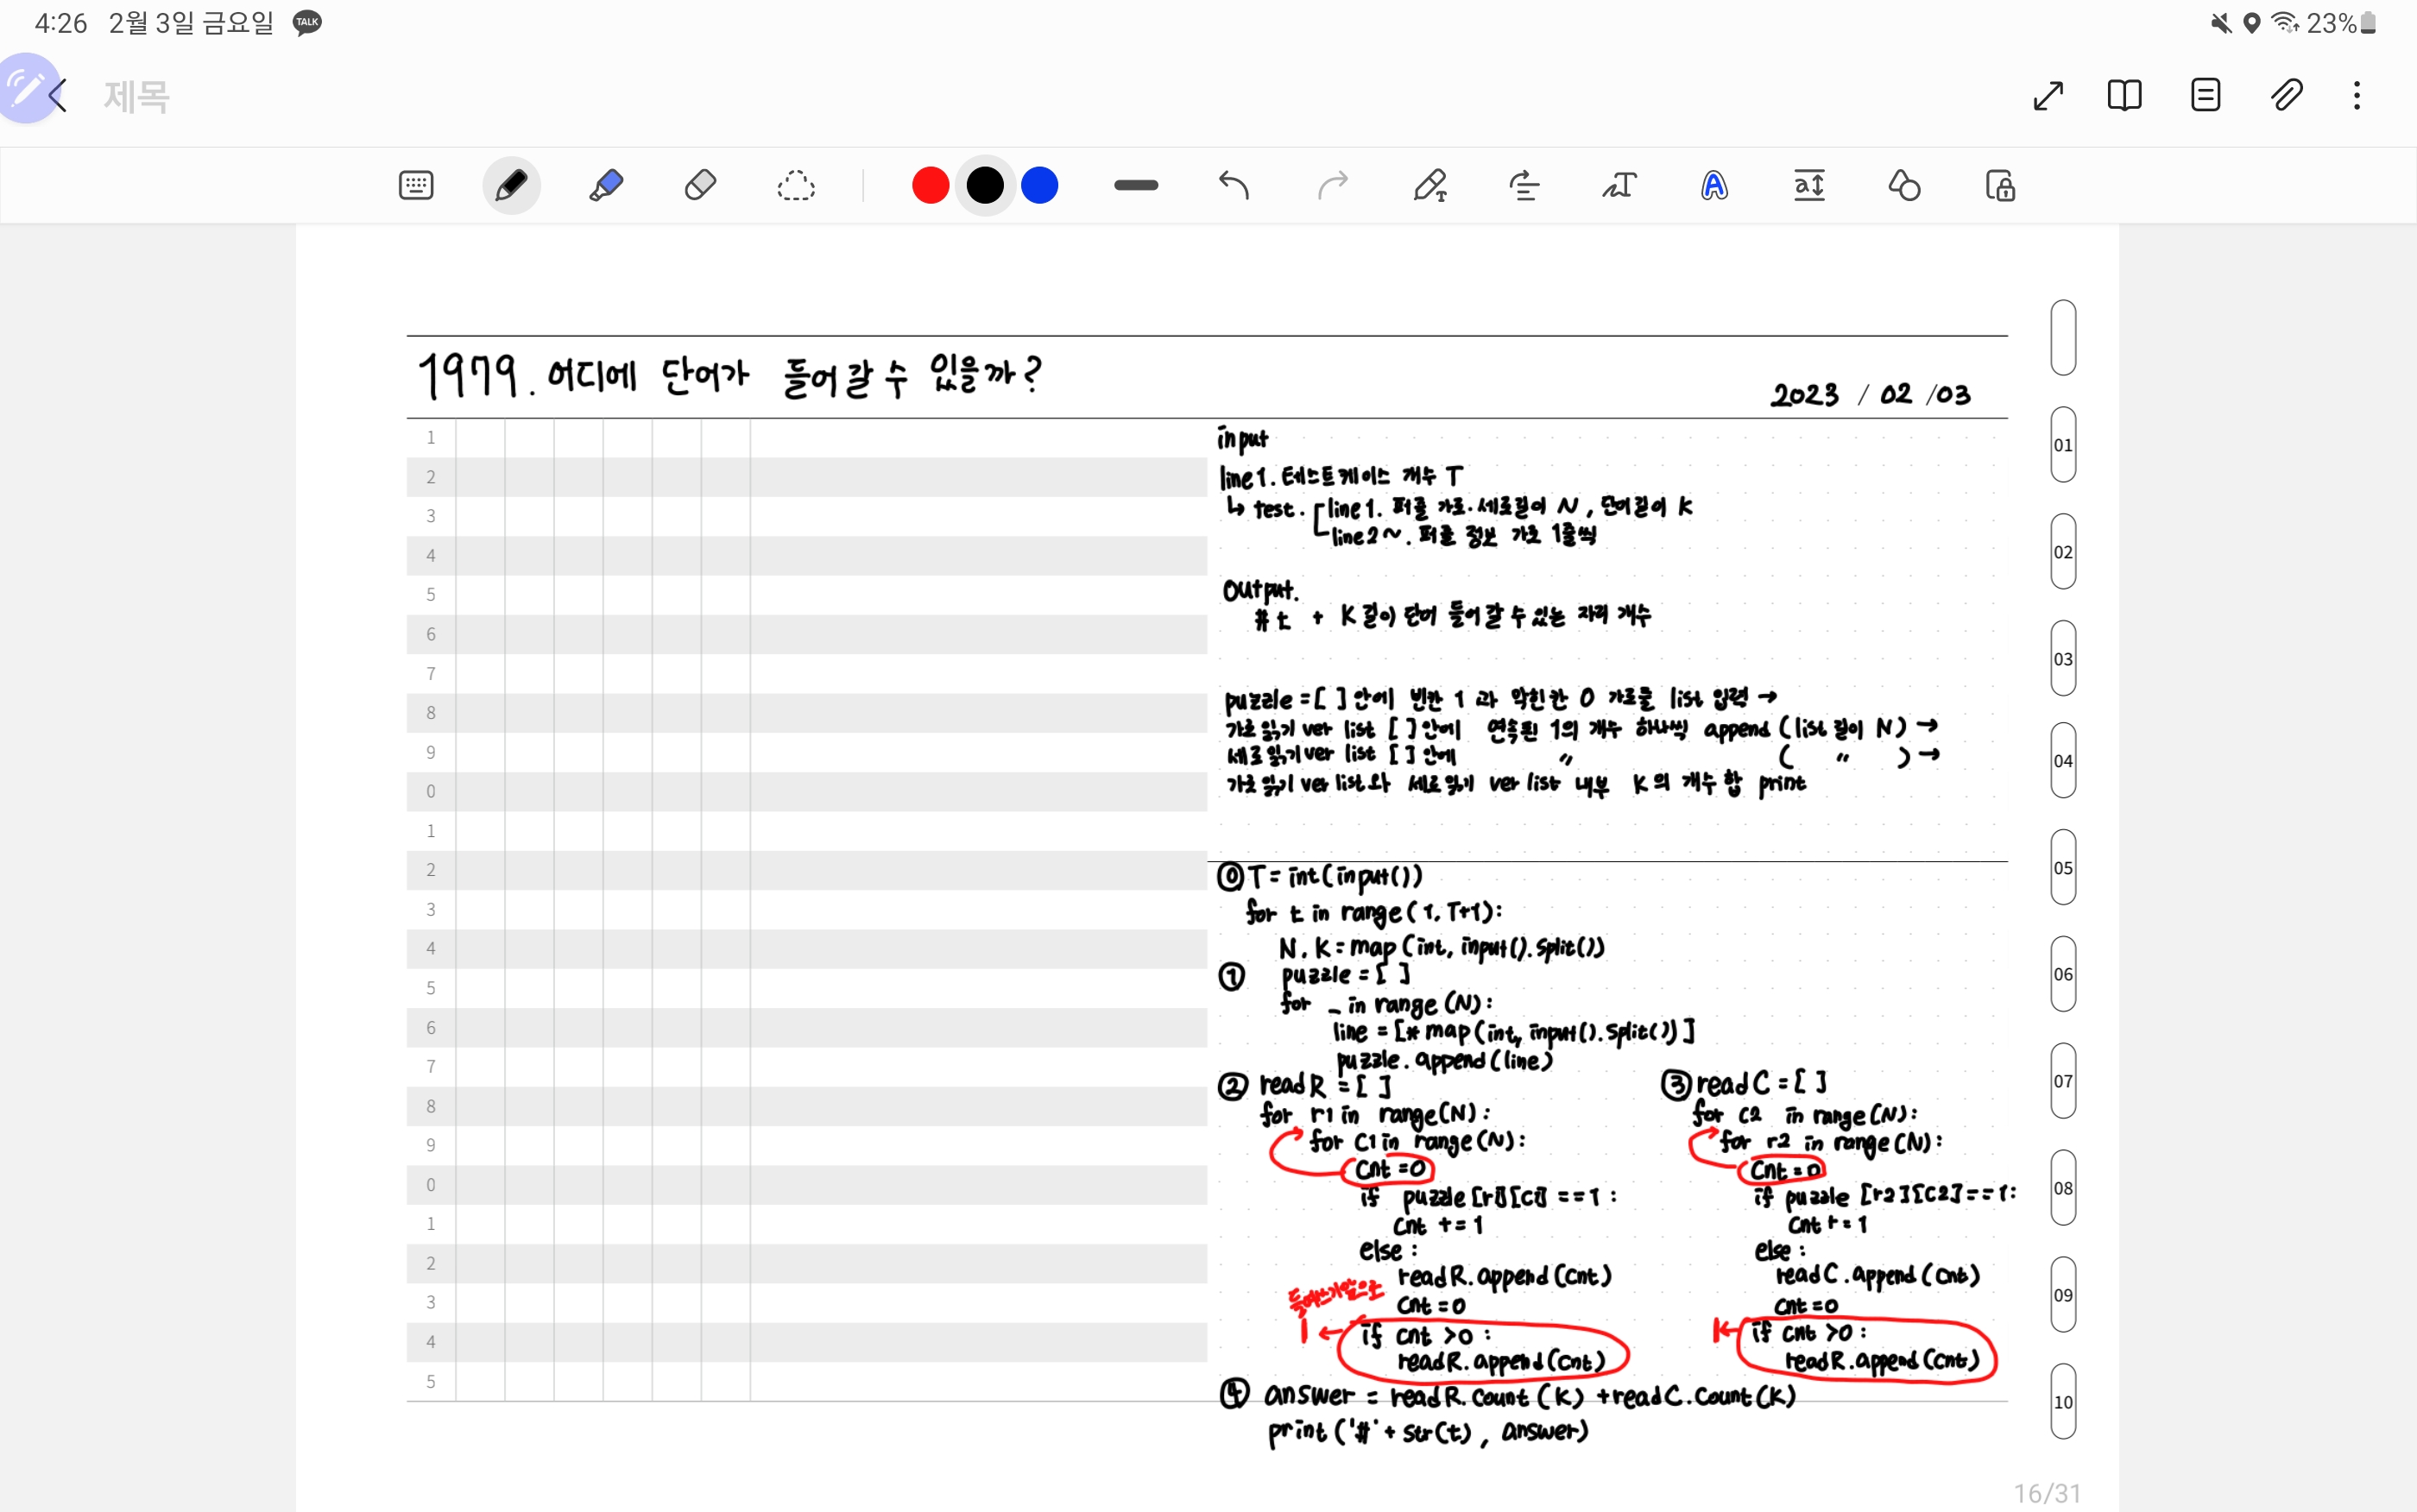 4:26 2월 3일 금요일 TALK 23%
제목
1979. 어디에 단어가 들어갈 수 있을까?
2023 / 02 /03
1
2
3
4
5
6
7
8
9
0
1
2
3
4
5
6
7
8
9
0
1
2
3
4
5
input
line1. 테스트케이스 개수 T
↳ test. line1. 퍼즐 가로·세로길이 N, 단어길이 K
line2~. 퍼즐 정보 가로 1줄씩
output.
#t + K길이 단어 들어갈 수 있는 자리 개수
puzzle = [ ] 안에 빈칸 1 과 막힌칸 0 가로줄 list 입력 →
가로읽기 ver list [ ] 안에 연속된 1의 개수 하나씩 append (list 길이 N) →
세로읽기 ver list [ ] 안에 〃 ( 〃 ) →
가로읽기 ver list와 세로읽기 ver list 내부 K의 개수 합 print
⓪ T = int(input())
for t in range(1, T+1):
N, K = map(int, input().split())
① puzzle = [ ]
for _ in range(N):
line = [* map(int, input().split())]
puzzle.append(line)
② readR = [ ]
for r1 in range(N):
for c1 in range(N):
cnt = 0
if puzzle[r1][c1] == 1:
cnt += 1
else:
readR.append(cnt)
cnt = 0
들여쓰기앞으로
← if cnt > 0:
readR.append(cnt)
③ readC = [ ]
for c2 in range(N):
for r2 in range(N):
cnt = 0
if puzzle[r2][c2] == 1:
cnt += 1
else:
readC.append(cnt)
cnt = 0
← if cnt > 0:
readR.append(cnt)
④ answer = readR.count(K) + readC.count(K)
print('#' + str(t), answer)
01
02
03
04
05
06
07
08
09
10
16/31